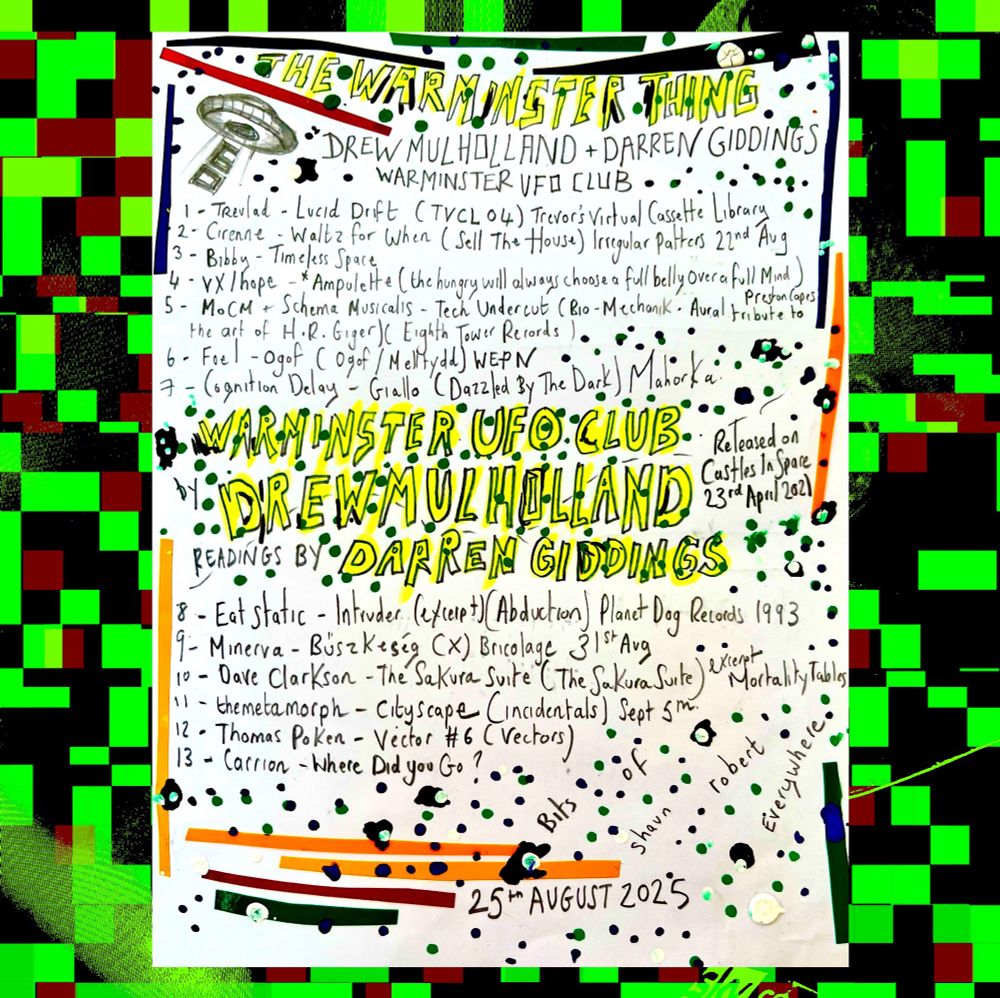 THE WARMINSTER THING
DREW MULHOLLAND + DARREN GIDDINGS
WARMINSTER UFO CLUB
1 - Trevlad - Lucid Drift (TVCL04) Trevor's Virtual Cassette Library
2 - Cirenne - Waltz for When (Sell The House) Irregular Patters 22nd Aug
3 - Bibby - Timeless Space
4 - VX/hope - *Ampulette (the hungry will always choose a full belly over a full Mind)
Preston Capes
5 - MoCM + Schema Musicalis - Tech Undercut (Bio-Mechanik - Aural tribute to
the art of H.R. Giger)( Eighth Tower Records )
6 - Foel - Ogof (Ogof/Melltydd) WEPN
7 - Cognition Delay - Giallo (Dazzled By The Dark) Mahorka.
WARMINSTER UFO CLUB
by DREW MULHOLLAND
READINGS BY DARREN GIDDINGS
Released on
Castles In Space
23rd April 2021
8 - Eat Static - Intruder (excerpt)(Abduction) Planet Dog Records 1993
9 - Minerva - Büszkeség (CX) Bricolage 31st Aug
10 - Dave Clarkson - The Sakura Suite (The Sakura Suite) excerpt Mortality Tables
11 - themetamorph - Cityscape (incidentals) Sept 5th.
12 - Thomas Poken - Vector #6 (Vectors)
13 - Carrion - Where Did you Go?
Bits of
shaun robert
Everywhere
25th AUGUST 2025